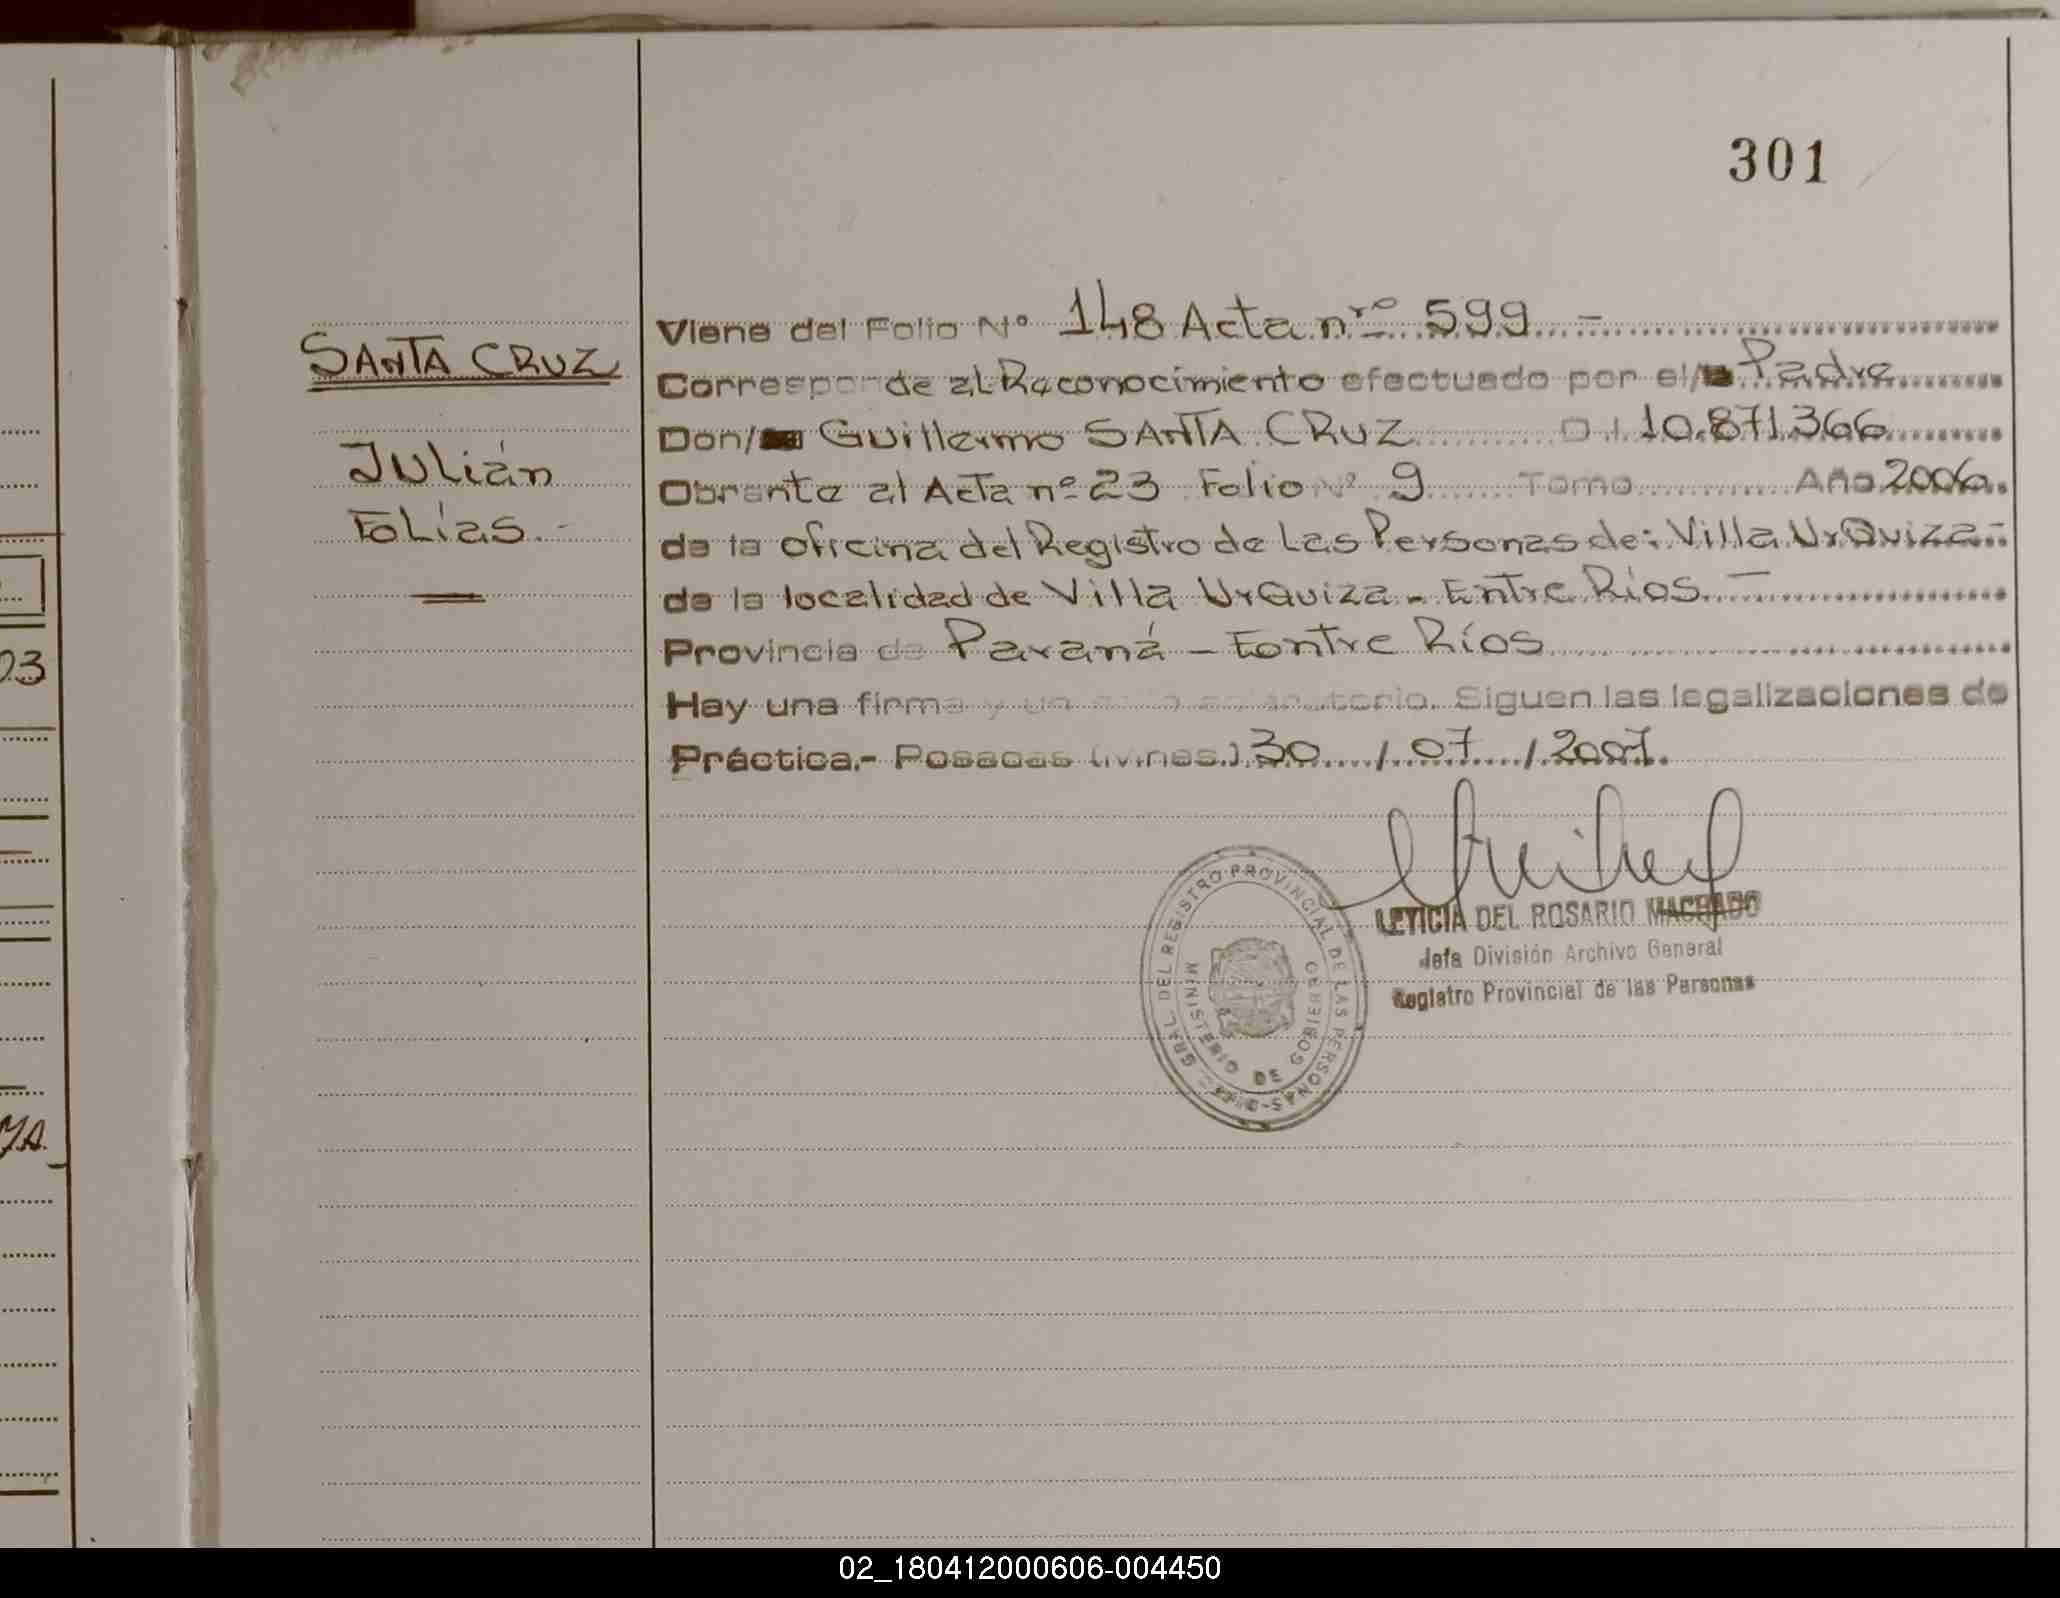 301
SANTA CRUZ
Julián
Eolías.-
Viene del Folio Nº 148 Acta nrº 599.-
Corresponde al Reconocimiento efectuado por el/ Padre
Don/ Guillermo SANTA CRUZ D.I. 10.871.366
Obrante al Acta nº 23 Folio Nº 9 Tomo Año 2006.
de la Oficina del Registro de Las Personas de: Villa UrQuiza-
de la localidad de Villa UrQuiza - Entre Ríos.-
Provincia de Paraná - Eontre Ríos
Hay una firma y un sello aclaratorio. Siguen las legalizaciones de
Práctica.- Posadas (Mnes.) 30 / 07 / 2007.
LETICIA DEL ROSARIO MACHADO
Jefa División Archivo General
Registro Provincial de las Personas
GRAL. DEL REGISTRO PROVINCIAL DE LAS PERSONAS
MINISTERIO DE GOBIERNO
03
02_180412000606-004450